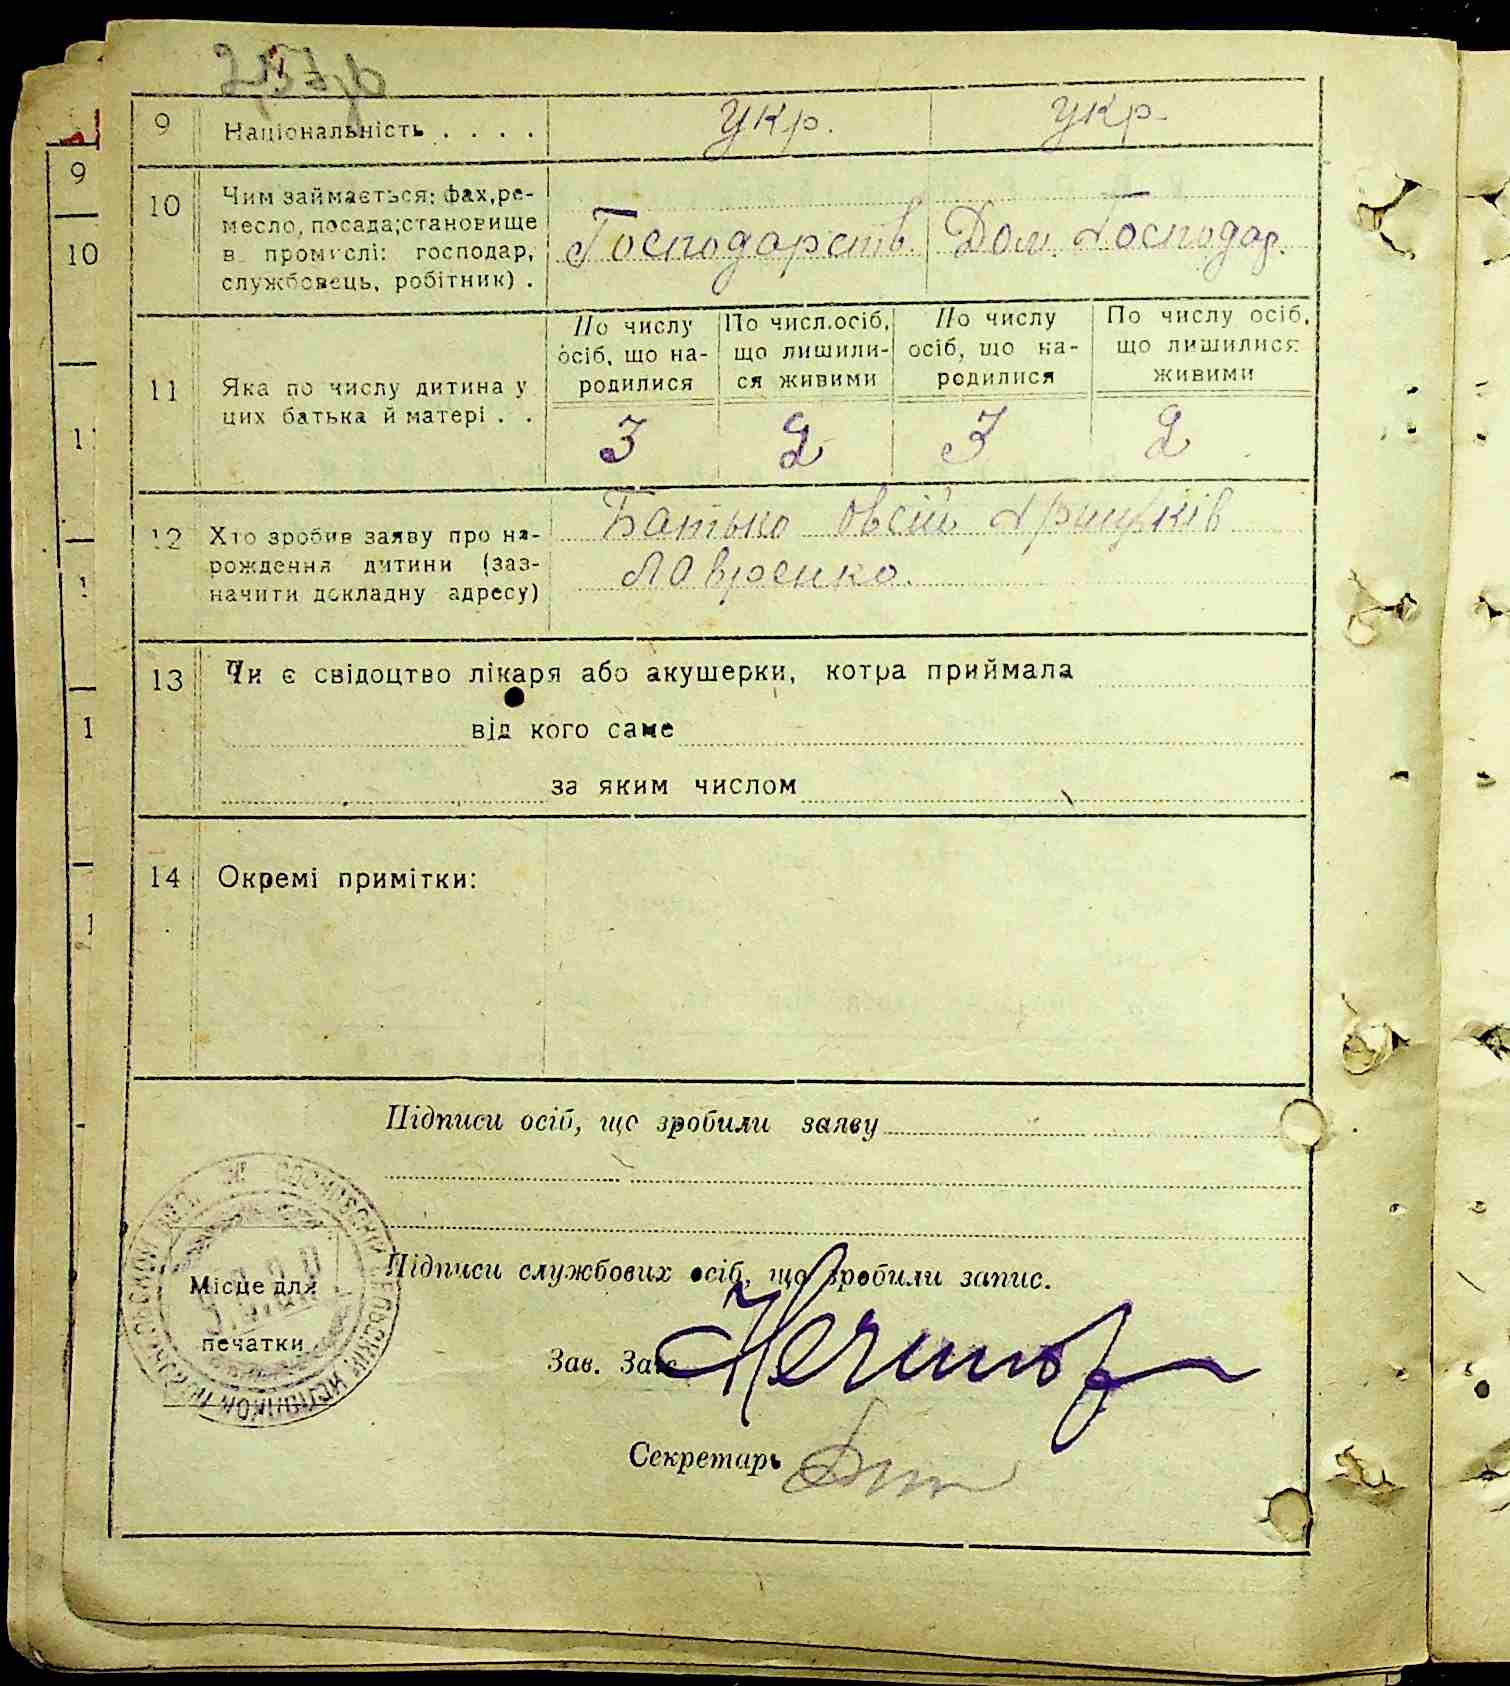 9 Національність . . . . укр. укр.
10 Чим займається: фах, ре-
месло, посада; становище
в промислі: господар,
службовець, робітник) .
Господарств. Дом. Господар.
По числу По числ. осіб, По числу По числу осіб,
осіб, що на- що лишили- осіб, що на- що лишилися
родилися ся живими родилися живими
11 Яка по числу дитина у
цих батька й матері . .
3 2 3 2
12 Хто зробив заяву про на-
рождення дитини (заз-
начити докладну адресу)
Батько Овсій
Лавренко.
13 Чи є свідоцтво лікаря або акушерки, котра приймала
від кого саме
за яким числом
14 Окремі примітки:
Підписи осіб, що зробили заяву
Підписи службових осіб, що зробили запис.
Місце для
печатки
Зав. Загс
Секретарь
9
10